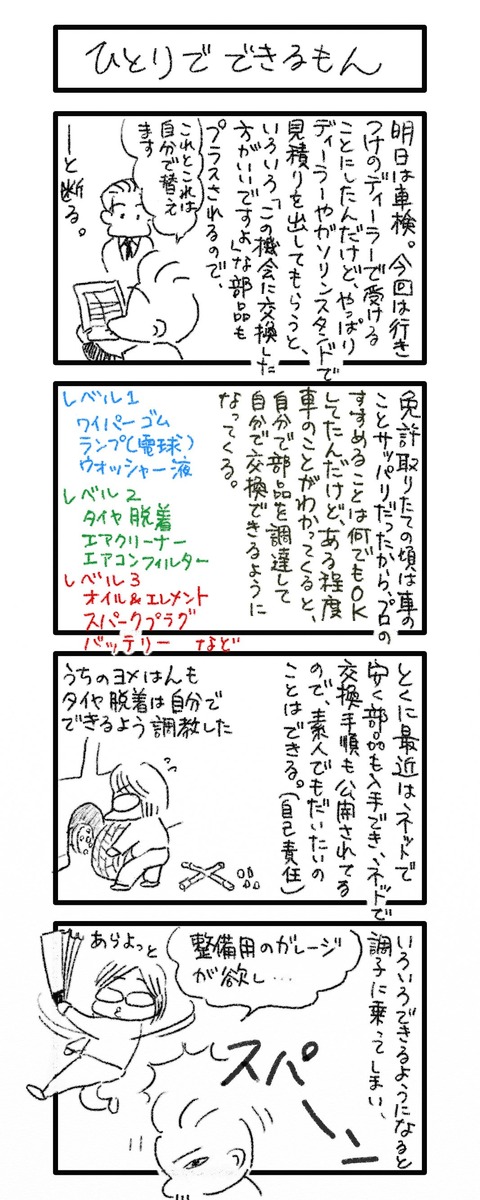 ひとりでできるもん
明日は車検。今回は行き
つけのディーラーで受ける
ことにしたんだけど、やっぱり
ディーラーやガソリンスタンドで
見積りを出してもらうと、
いろいろ「この機会に交換した
方がいいですよ」な部品も
プラスされるので、
これとこれは
自分で替え
ます
―と断る。
免許取りたての頃は車の
ことサッパリだったから、プロの
すすめることは何でもOK
してたんだけど、ある程度
車のことがわかってくると、
自分で部品を調達して
自分で交換できるように
なってくる。
レベル1
ワイパーゴム
ランプ(電球)
ウォッシャー液
レベル2
タイヤ脱着
エアクリーナー
エアコンフィルター
レベル3
オイル&エレメント
スパークプラグ
バッテリー など
とくに最近はネットで
安く部品も入手でき、ネットで
交換手順も公開されてる
ので、素人でもだいたいの
ことはできる。(自己責任)
うちのヨメはんも
タイヤ脱着は自分で
できるよう調教した
いろいろできるようになると
調子に乗ってしまい、
整備用のガレージ
が欲し…
あらよっと
スパーン